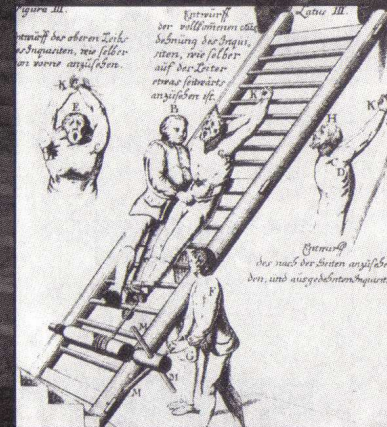 Figura III.
Entwürff des oberen Leibs
des Inquisiten, wie selber
von vorne anzusehen.
Entwürff
der vollkommenen Aus
dehnung des Inqui,
siten, wie selber
auf der Leiter
etwas seitwärts
anzusehen ist.
Latus III.
K
E
B
K
H
K
D
Entwurff
des nach der Seiten anzusehen
den, und ausgedehnten Inquisiten
F
G
M
M
M